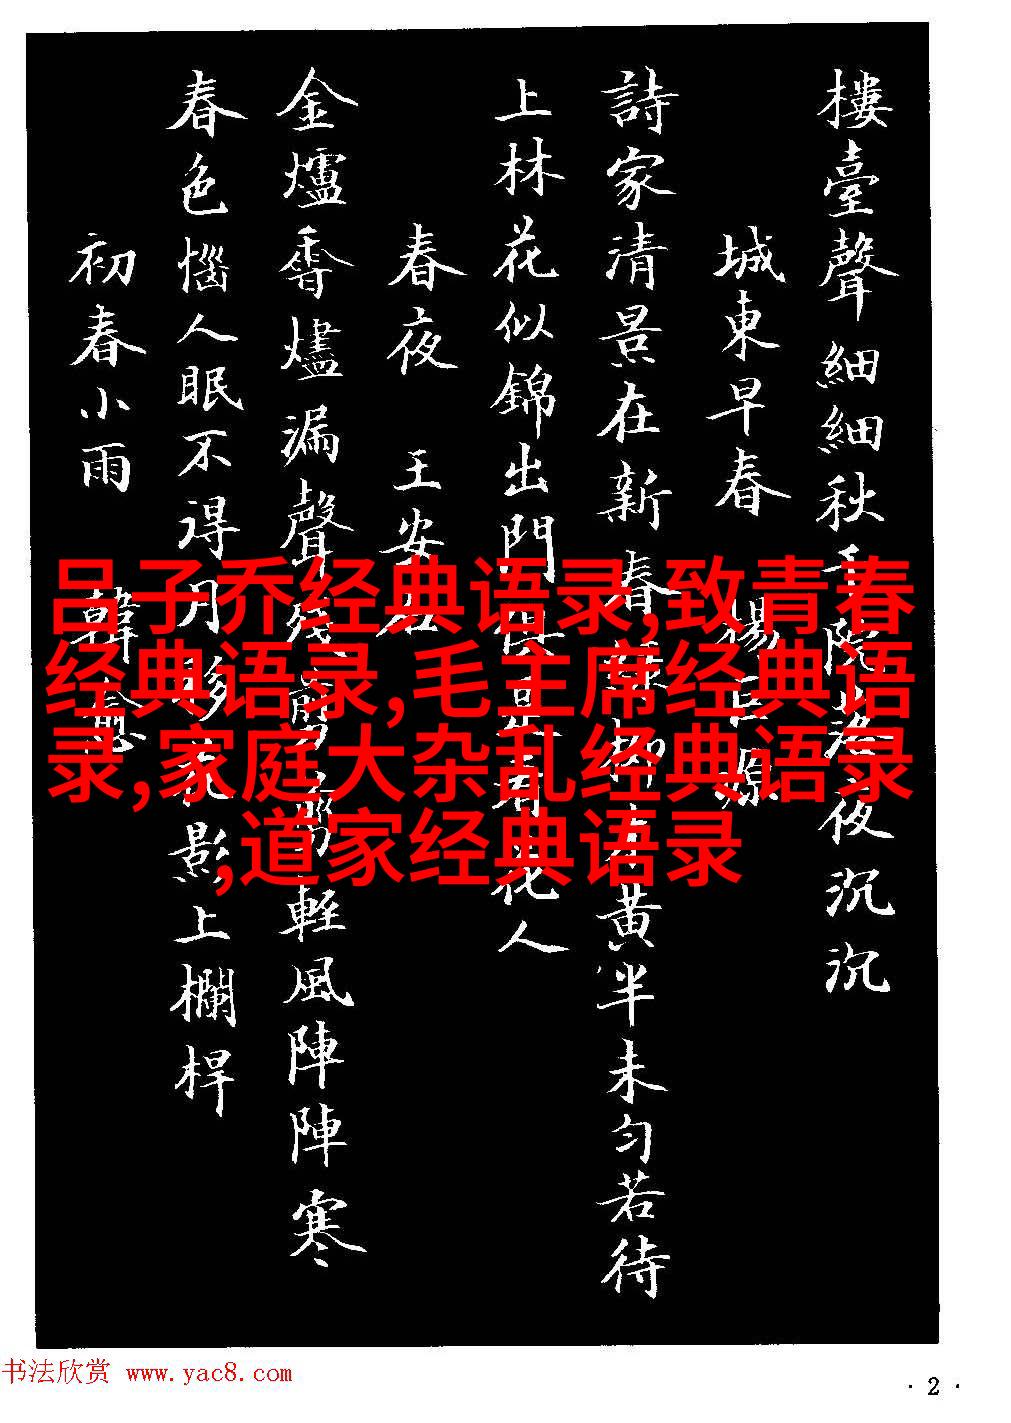 樓臺聲細細秋千院落夜沉沉
城東早春 楊巨源
詩家清景在新春綠柳才黃半未勻若待
上林花似錦出門俱是看花人
春夜 王安石
金爐香燼漏聲残剪剪輕風陣陣寒
春色惱人眠不得月移花影上欄桿
初春小雨 韓愈
吕子乔经典语录,致青春
经典语录,毛主席经典语
录,家庭大杂乱经典语录
,道家经典语录
书法欣赏 www.yac8.com
· 2 ·